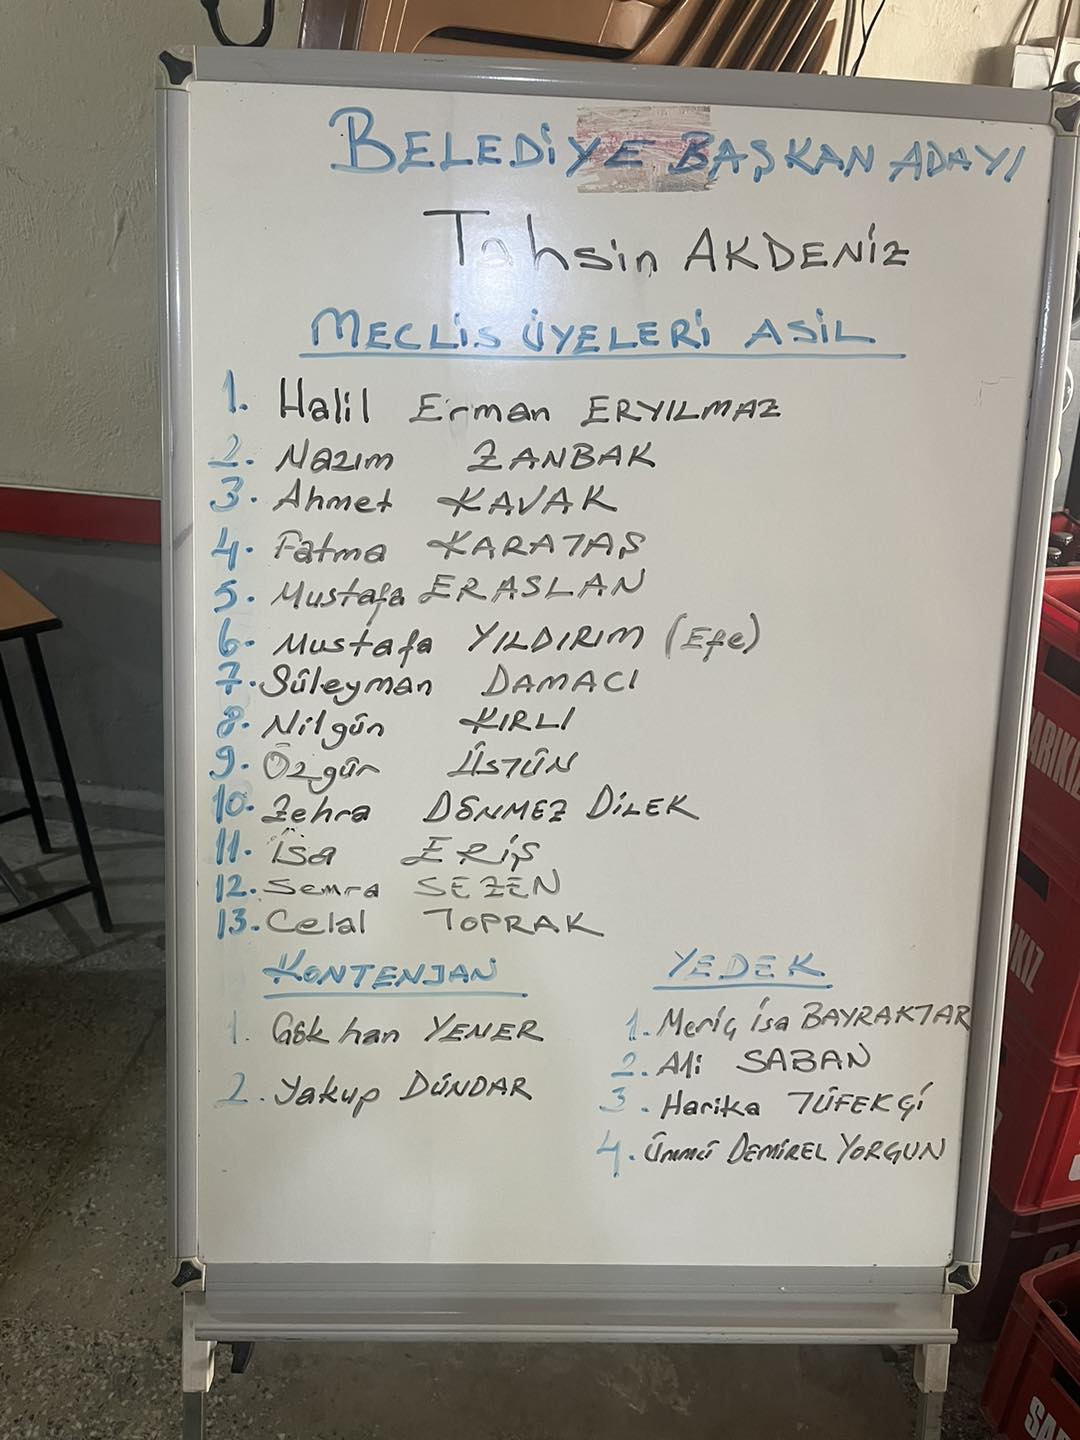 BELEDİYE BAŞKAN ADAYI
Tahsin AKDENİZ
MECLİS ÜYELERİ ASİL
1. Halil Erman ERYILMAZ
2. Nazım ZANBAK
3. Ahmet KAVAK
4. Fatma KARATAŞ
5. Mustafa ERASLAN
6. Mustafa YILDIRIM (Efe)
7. Süleyman DAMACI
8. Nilgün KIRLI
9. Özgür ÜSTÜN
10. Zehra DÖNMEZ DİLEK
11. İsa ERİŞ
12. Semra SEZEN
13. Celal TOPRAK
KONTENJAN
1. Gökhan YENER
2. Yakup DÜNDAR
YEDEK
1. Meriç İsa BAYRAKTAR
2. Ali SABAN
3. Harika TÜFEKÇİ
4. Ümmü DEMİREL YORGUN